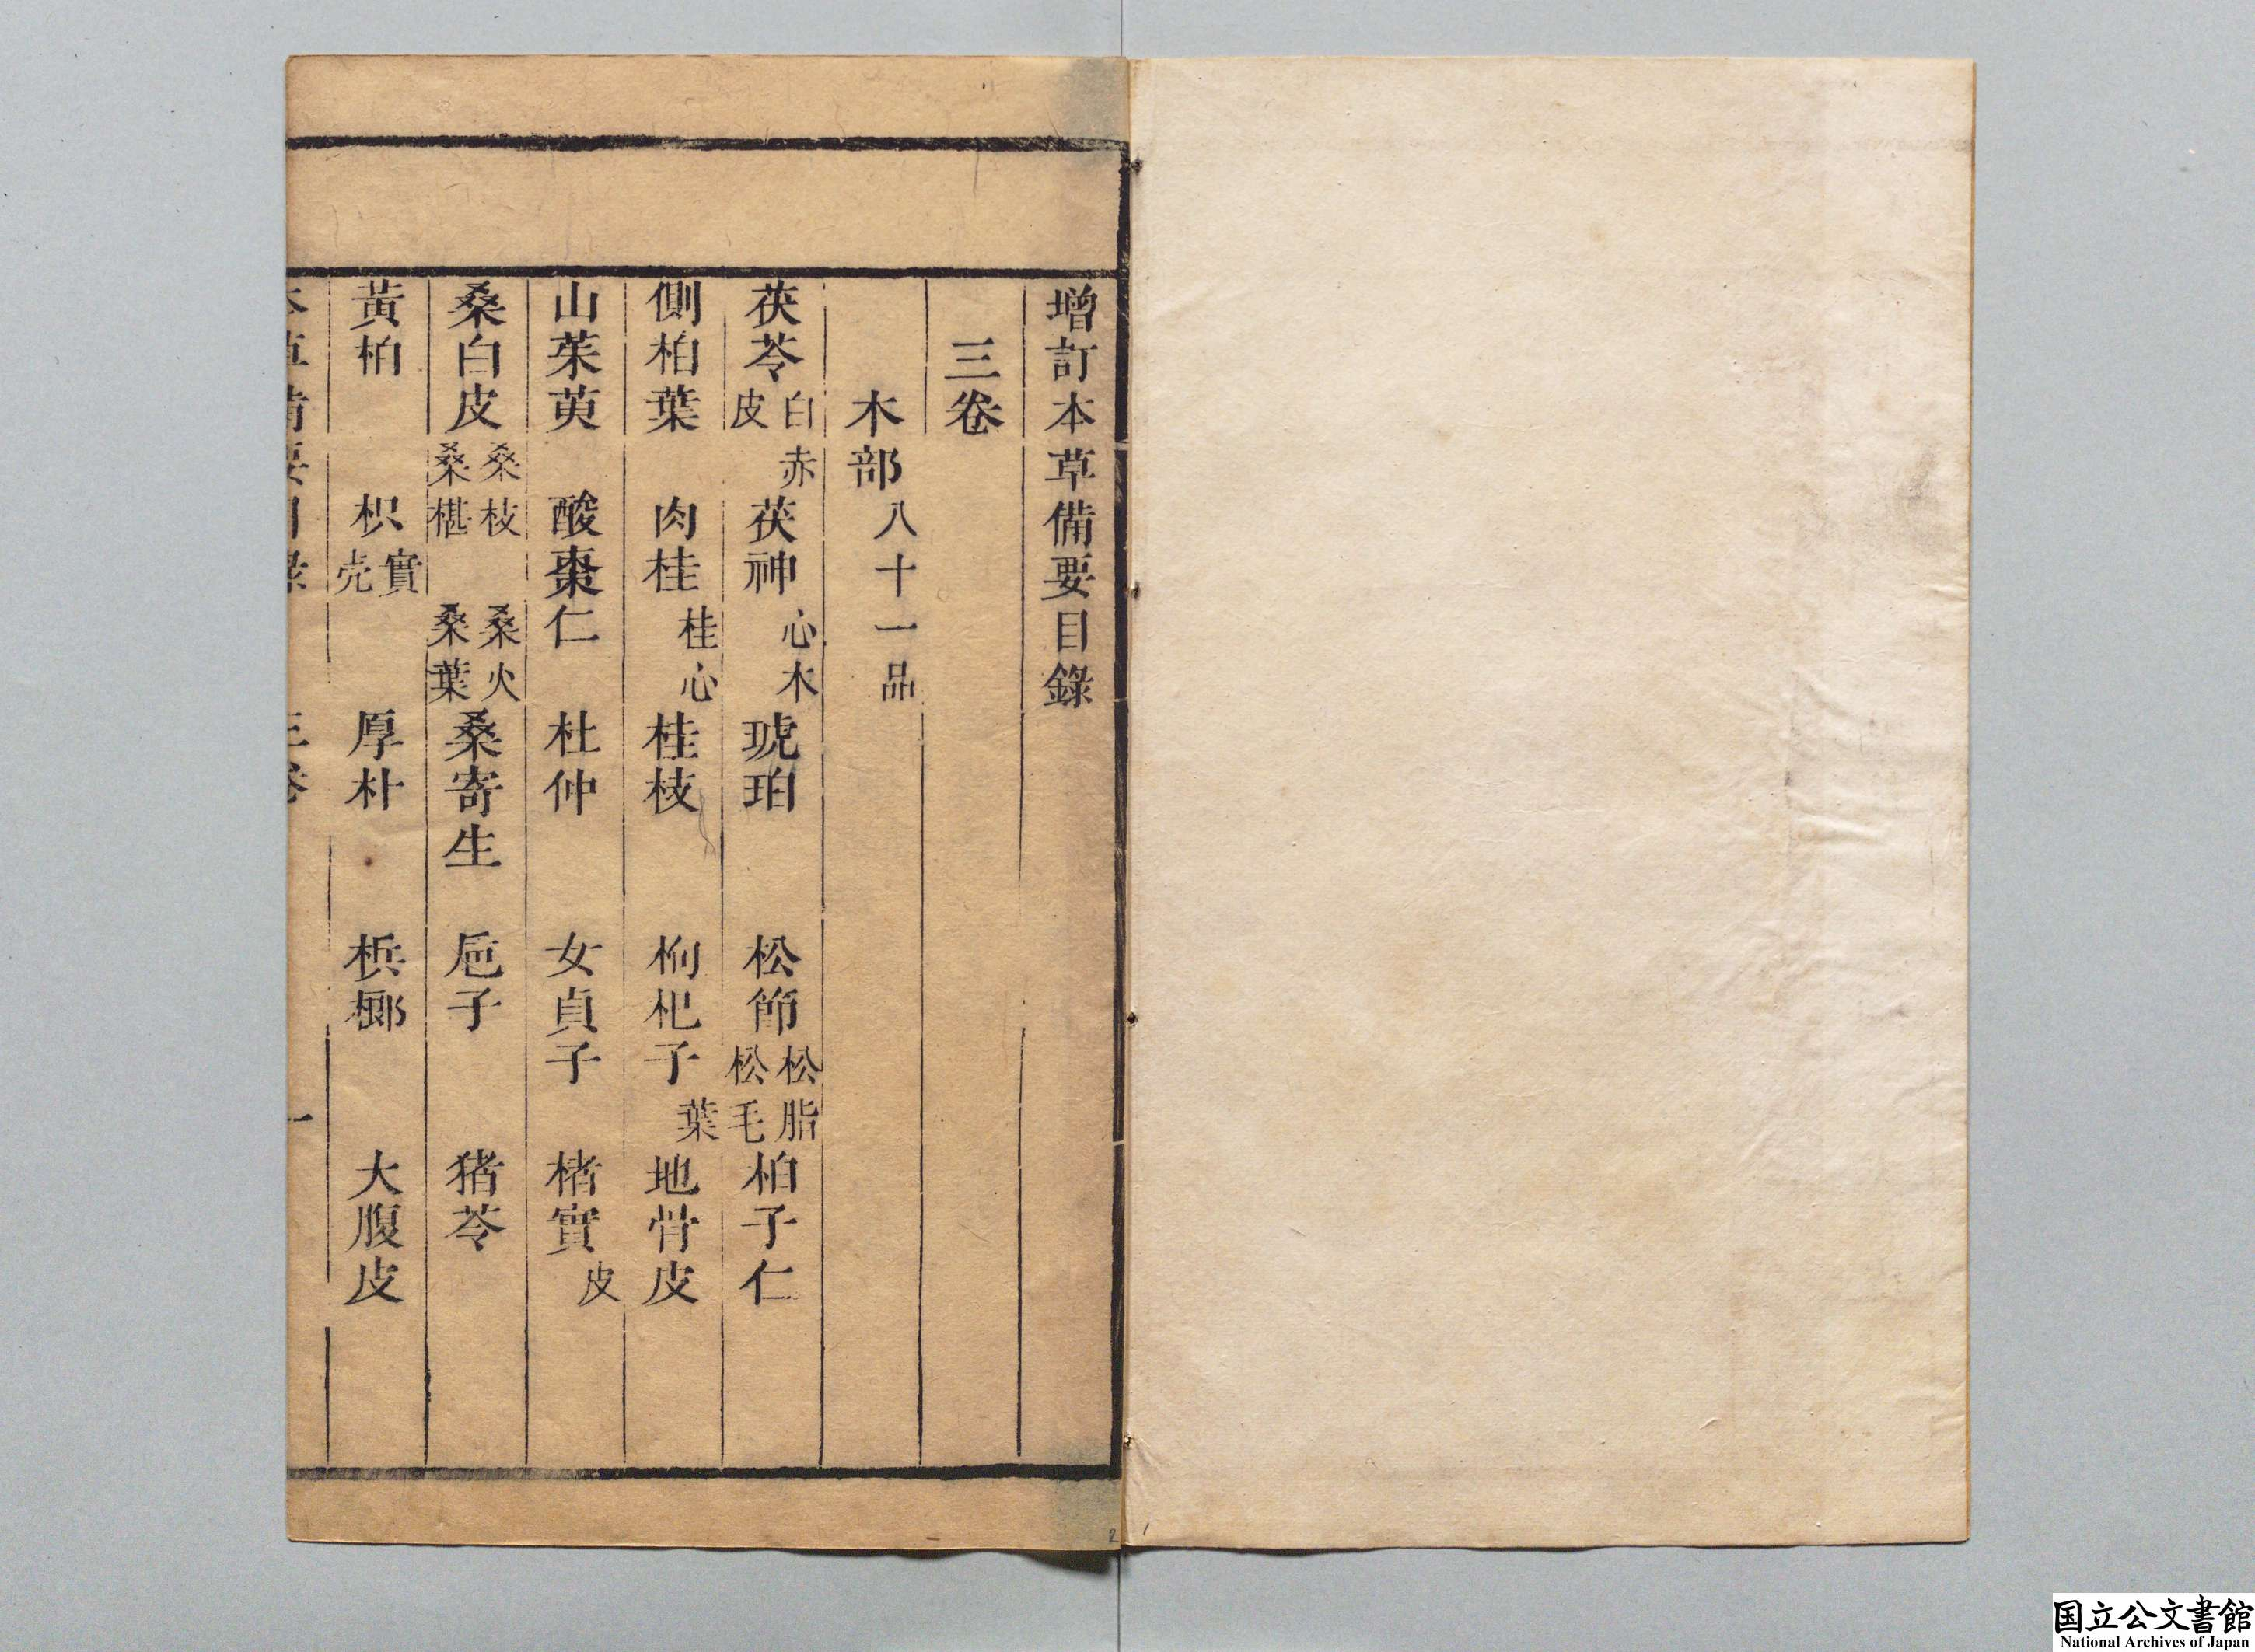 增訂本草備要目錄
三卷
木部八十一品
茯苓白赤皮 茯神心木 琥珀 松節松脂松毛 柏子仁
側柏葉 肉桂桂心 桂枝 枸杞子葉 地骨皮
山茱萸 酸棗仁 杜仲 女貞子 楮實皮
桑白皮桑枝桑火桑椹桑葉 桑寄生 巵子 猪苓
黃柏 枳實壳 厚朴 梹榔 大腹皮
本草備要目錄 三卷 一
2
1
国立公文書館
National Archives of Japan